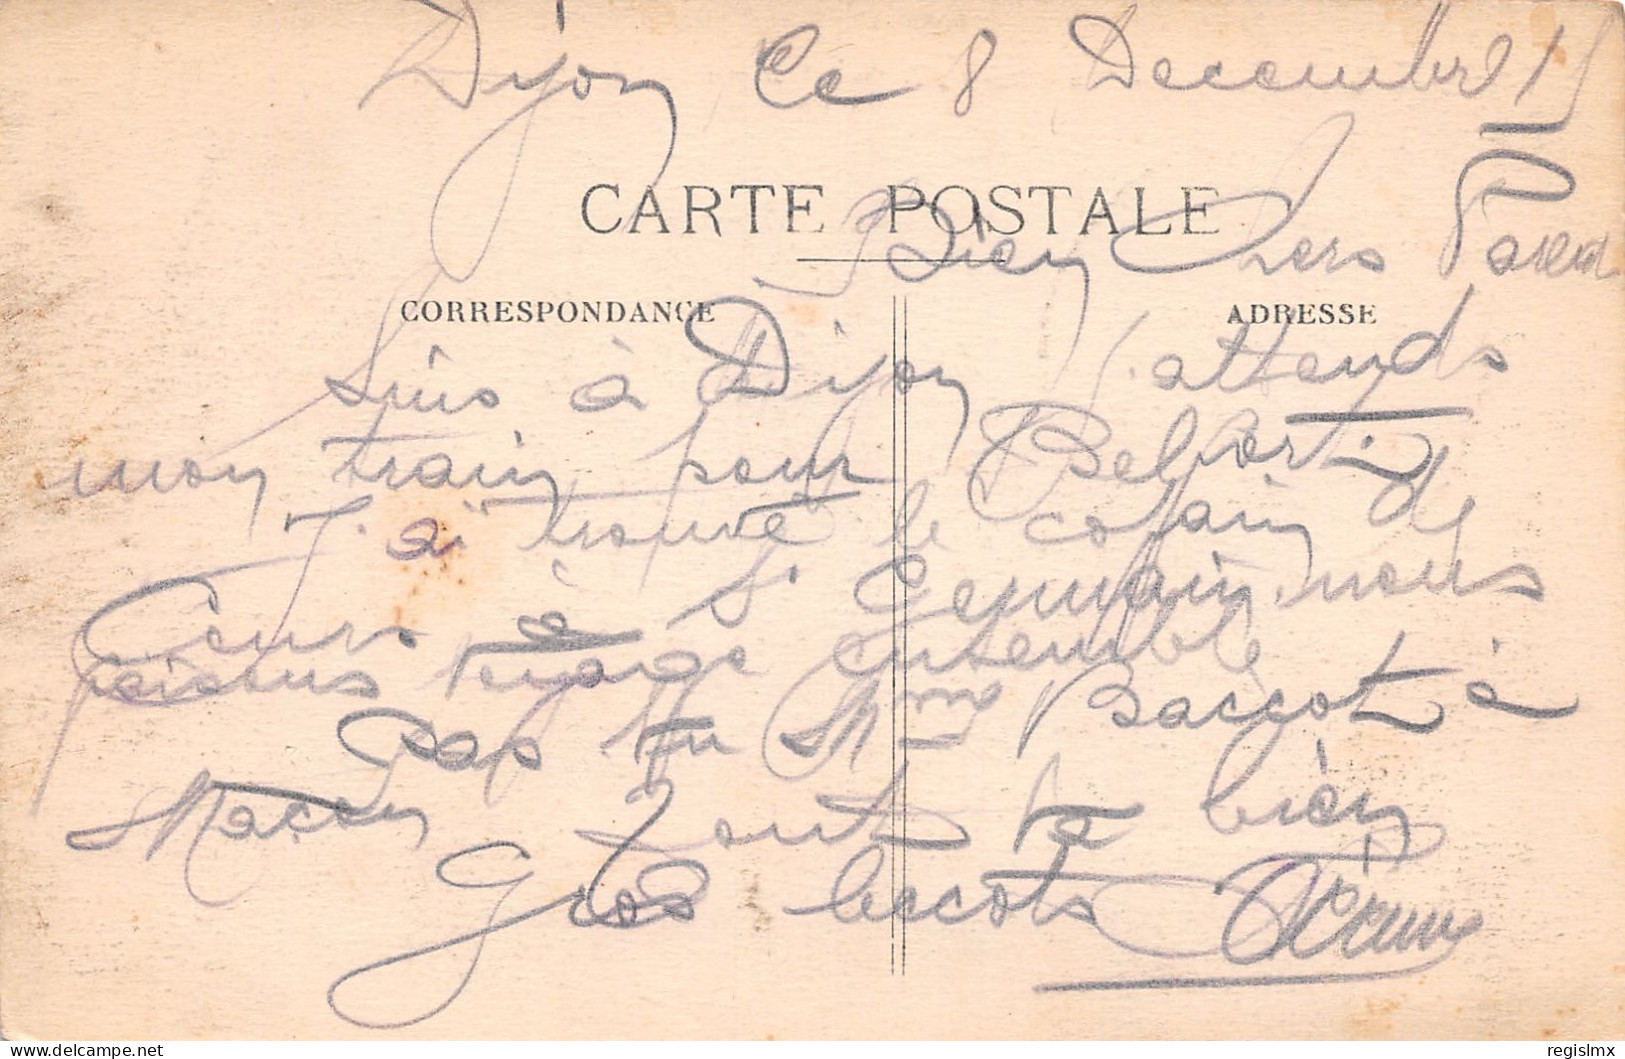 Dijon le 8 Decembre 15
CARTE POSTALE
Bien Chers Parents
CORRESPONDANCE
ADRESSE
Suis à Dijon J'attends
mon train pour Belfort.
J'ai trouvé le copain de
Cours à St Germain. nous
faisons voyage ensemble
Pas vu Mme Baccot à
Macon Tout va bien
Gros becots
regislmx
© delcampe.net